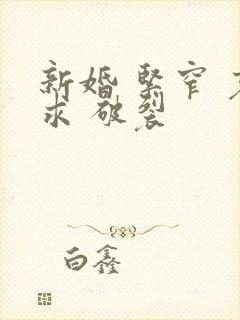 新婚 紧窄
求 破裂
白鑫